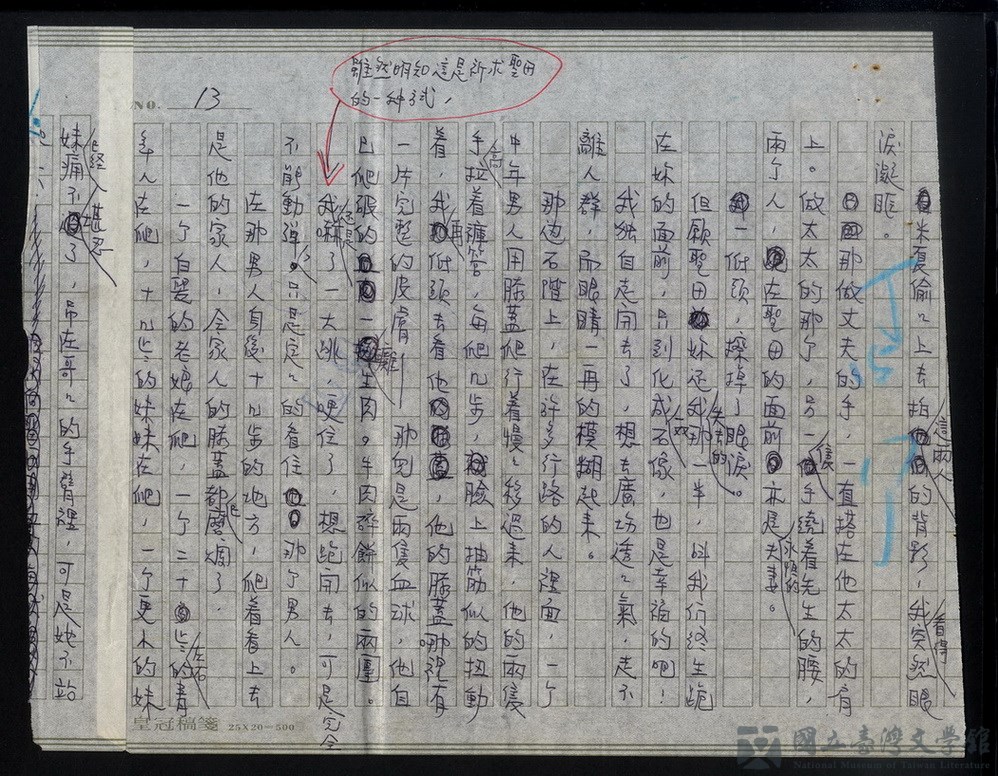 NO. 13
雖然明知這是祈求聖母
的一种方式，
米夏偷々上去拍這兩人的背影，我突然看得眼
淚凝眶。
那做丈夫的手，一直搭在他太太的肩
上。做太太的那个，另一隻手繞着先生的腰，
兩个人，在聖母的面前永恆的亦是夫妻。
一低頭，擦掉了眼淚。
但願聖母妹还我失去的那一半，叫我們終生跪
在妳的面前，只到化成石像，也是幸福的吧！
我独自走開去了，想去廣场透々氣，走不
離人群，而眼睛一再的模糊起来。
那边石階上，在許多行路的人裡面，一个
中年男人用膝蓋爬行着慢々移過来，他的兩隻
手拉着褲管，每爬几步，臉上抽筋似的扭動
着，我再低頭去看他，他的膝蓋哪裡有
一片完整的皮膚——那兒是兩隻血球，他自
己爬破的一攤生肉。牛肉碎餅似的兩團。
我嚇了一大跳，哽住了，想跑開去，可是完全
不能動弹。只是定々的看住那个男人。
在那男人身後十几步的地方，爬着看上去
是他的家人，全家人的膝蓋都磨爛了。
一个白髮的老娘在爬，一个三十左右的青
年人在爬，十几歲的妹妹在爬，一个更小的妹
妹已经痛不堪忍了，吊在哥々的手臂裡，可是她不站
皇冠稿箋 25X20=500
國立臺灣文學館
National Museum of Taiwan Literature